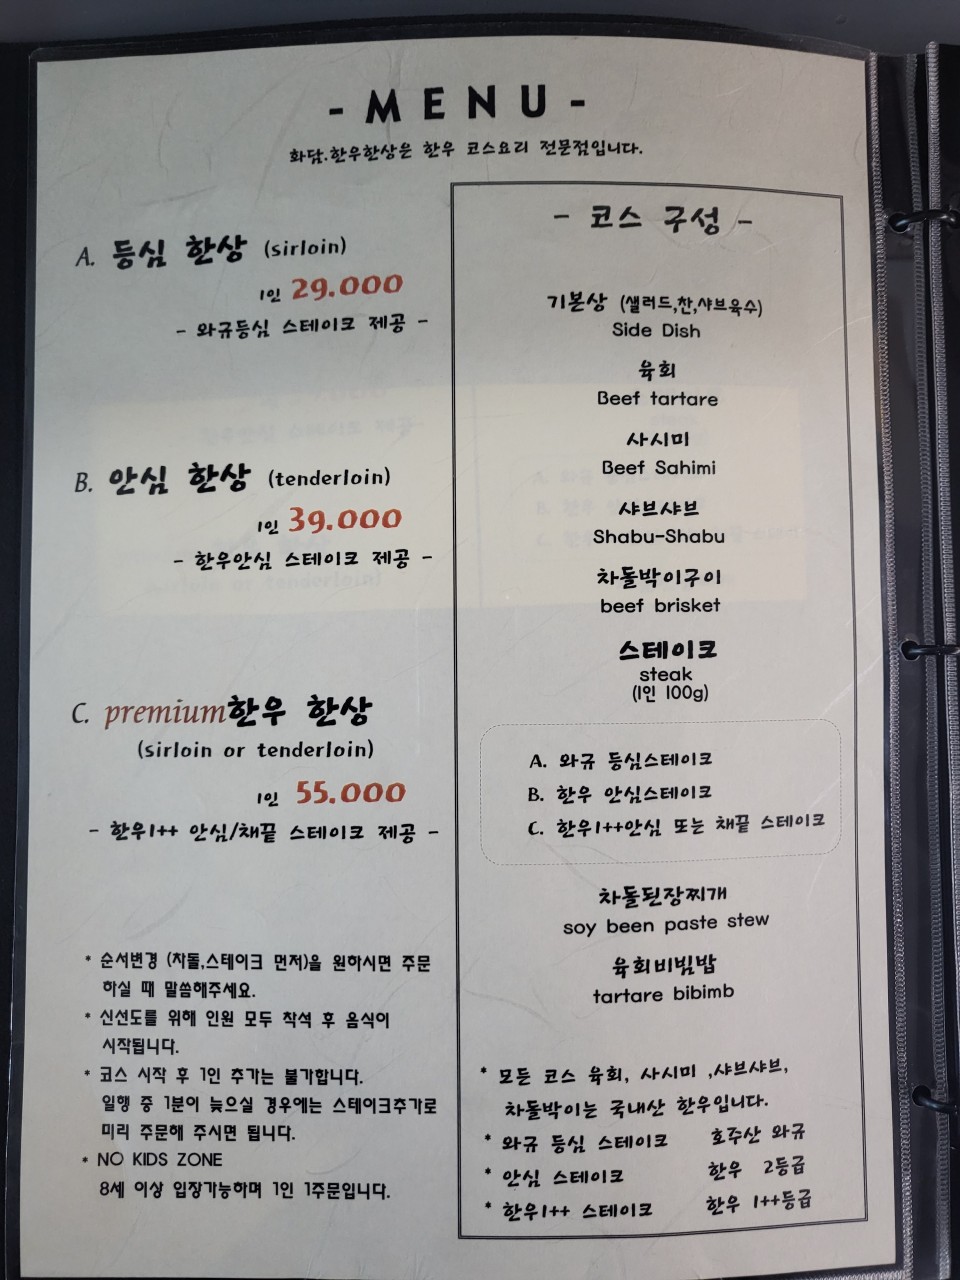 - MENU -
화담.한우한상은 한우 코스요리 전문점입니다.
A. 등심 한상 (sirloin)
1인 29.000
- 와규등심 스테이크 제공 -
B. 안심 한상 (tenderloin)
1인 39.000
- 한우안심 스테이크 제공 -
C. premium한우 한상
(sirloin or tenderloin)
1인 55.000
- 한우1++ 안심/채끝 스테이크 제공 -
* 순서변경 (차돌,스테이크 먼저)을 원하시면 주문
하실 때 말씀해주세요.
* 신선도를 위해 인원 모두 착석 후 음식이
시작됩니다.
* 코스 시작 후 1인 추가는 불가합니다.
일행 중 1분이 늦으실 경우에는 스테이크추가로
미리 주문해 주시면 됩니다.
* NO KIDS ZONE
8세 이상 입장가능하며 1인 1주문입니다.
- 코스 구성 -
기본상 (샐러드,찬,샤브육수)
Side Dish
육회
Beef tartare
사시미
Beef Sahimi
샤브샤브
Shabu-Shabu
차돌박이구이
beef brisket
스테이크
steak
(1인 100g)
A. 와규 등심스테이크
B. 한우 안심스테이크
C. 한우1++안심 또는 채끝 스테이크
차돌된장찌개
soy been paste stew
육회비빔밥
tartare bibimb
* 모든 코스 육회, 사시미 ,샤브샤브,
차돌박이는 국내산 한우입니다.
* 와규 등심 스테이크 호주산 와규
* 안심 스테이크 한우 2등급
* 한우1++ 스테이크 한우 1++등급